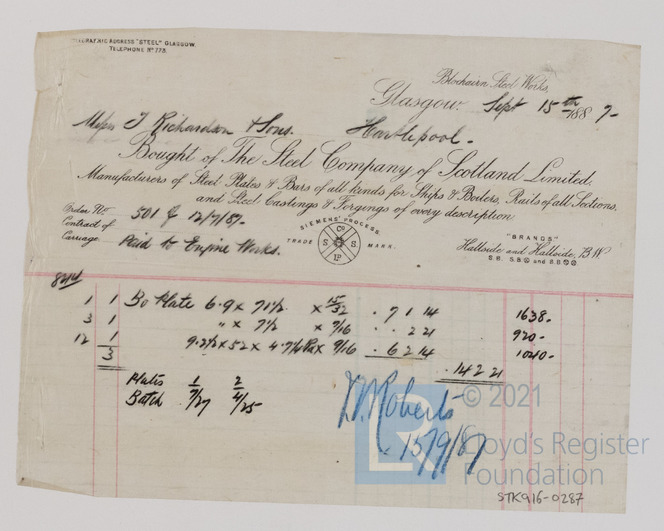 TELEGRAPHIC ADDRESS "STEEL" GLASGOW.
TELEPHONE No 773.
Blochairn Steel Works,
Glasgow. Sept 15th 1887-
Messrs T Richardson & Sons. Hartlepool-
Bought of The Steel Company of Scotland Limited,
Manufacturers of Steel Plates & Bars of all kinds for Ships & Boilers, Rails of all Sections,
and Steel Castings & Forgings of every description
Order No 501 12/7/87-
Contract of
Carriage Paid to Engine Works.
SIEMENS' PROCESS.
TRADE MARK.
Co S S LD
"BRANDS"
Hallside and Hallside, B.W
1 1 Bo Plate 6.9 x 7 1/2 x 15/32 . 7 1 14 1638-
3 1 " x 7 1/2 x 7/16 . . 2 21 920-
12 1 9.2 1/2 x 52 x 4.7 1/4 x 9/16 . 6 2 14 1040-
3 . 14 2 21
Plates 1 2
Batch 7/27 4/25
Roberts
15/9/87
© 2021
LR
Lloyd's Register
Foundation
STK916-0287